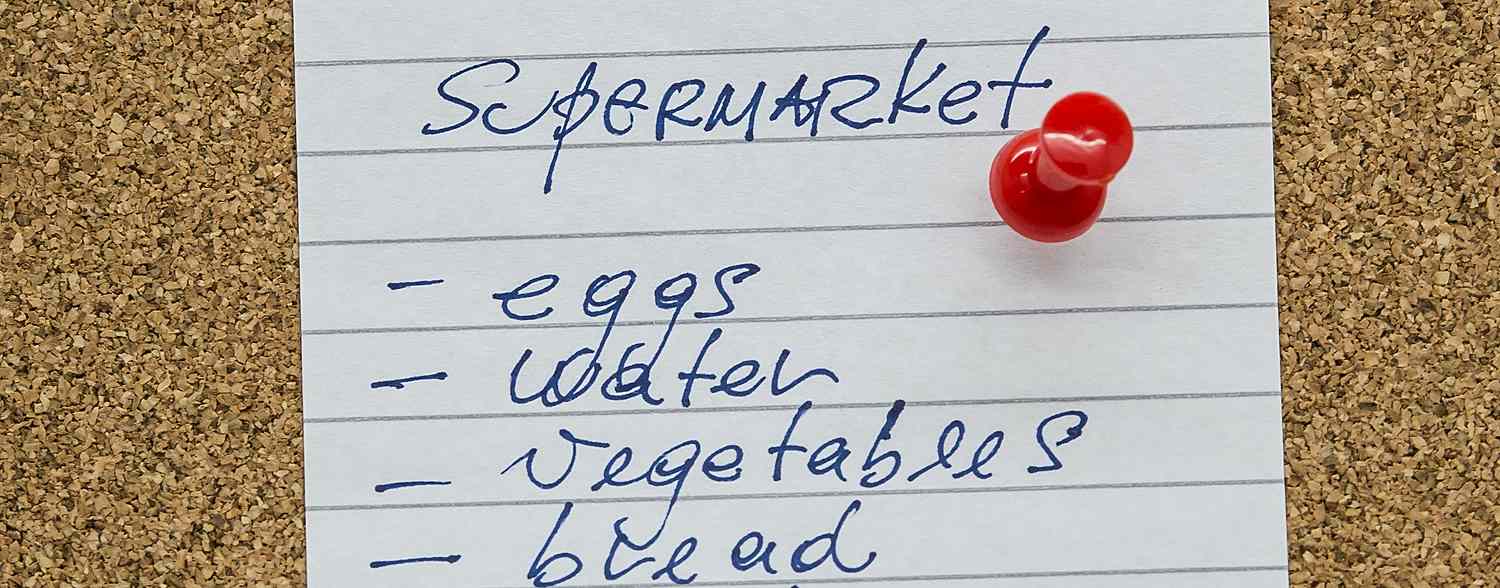 Supermarket
- eggs
- water
- vegetables
- bread